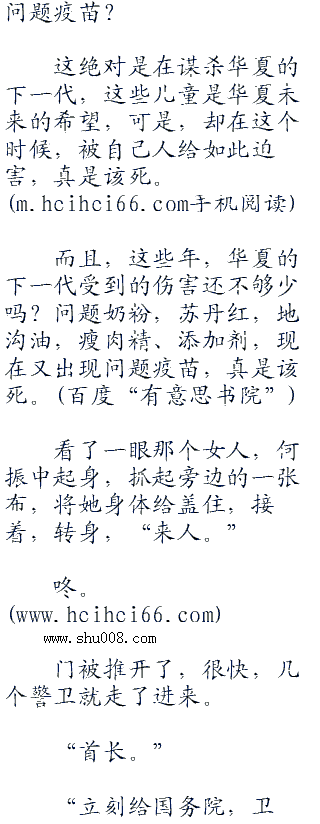 问题疫苗？
这绝对是在谋杀华夏的
下一代，这些儿童是华夏未
来的希望，可是，却在这个
时候，被自己人给如此迫
害，真是该死。
(m.hcihci66.com手机阅读)
而且，这些年，华夏的
下一代受到的伤害还不够少
吗？问题奶粉，苏丹红，地
沟油，瘦肉精、添加剂，现
在又出现问题疫苗，真是该
死。(百度“有意思书院”)
看了一眼那个女人，何
振中起身，抓起旁边的一张
布，将她身体给盖住，接
着，转身，“来人。”
咚。
(www.hcihci66.com)
www.shu008.com
门被推开了，很快，几
个警卫就走了进来。
“首长。”
“立刻给国务院，卫